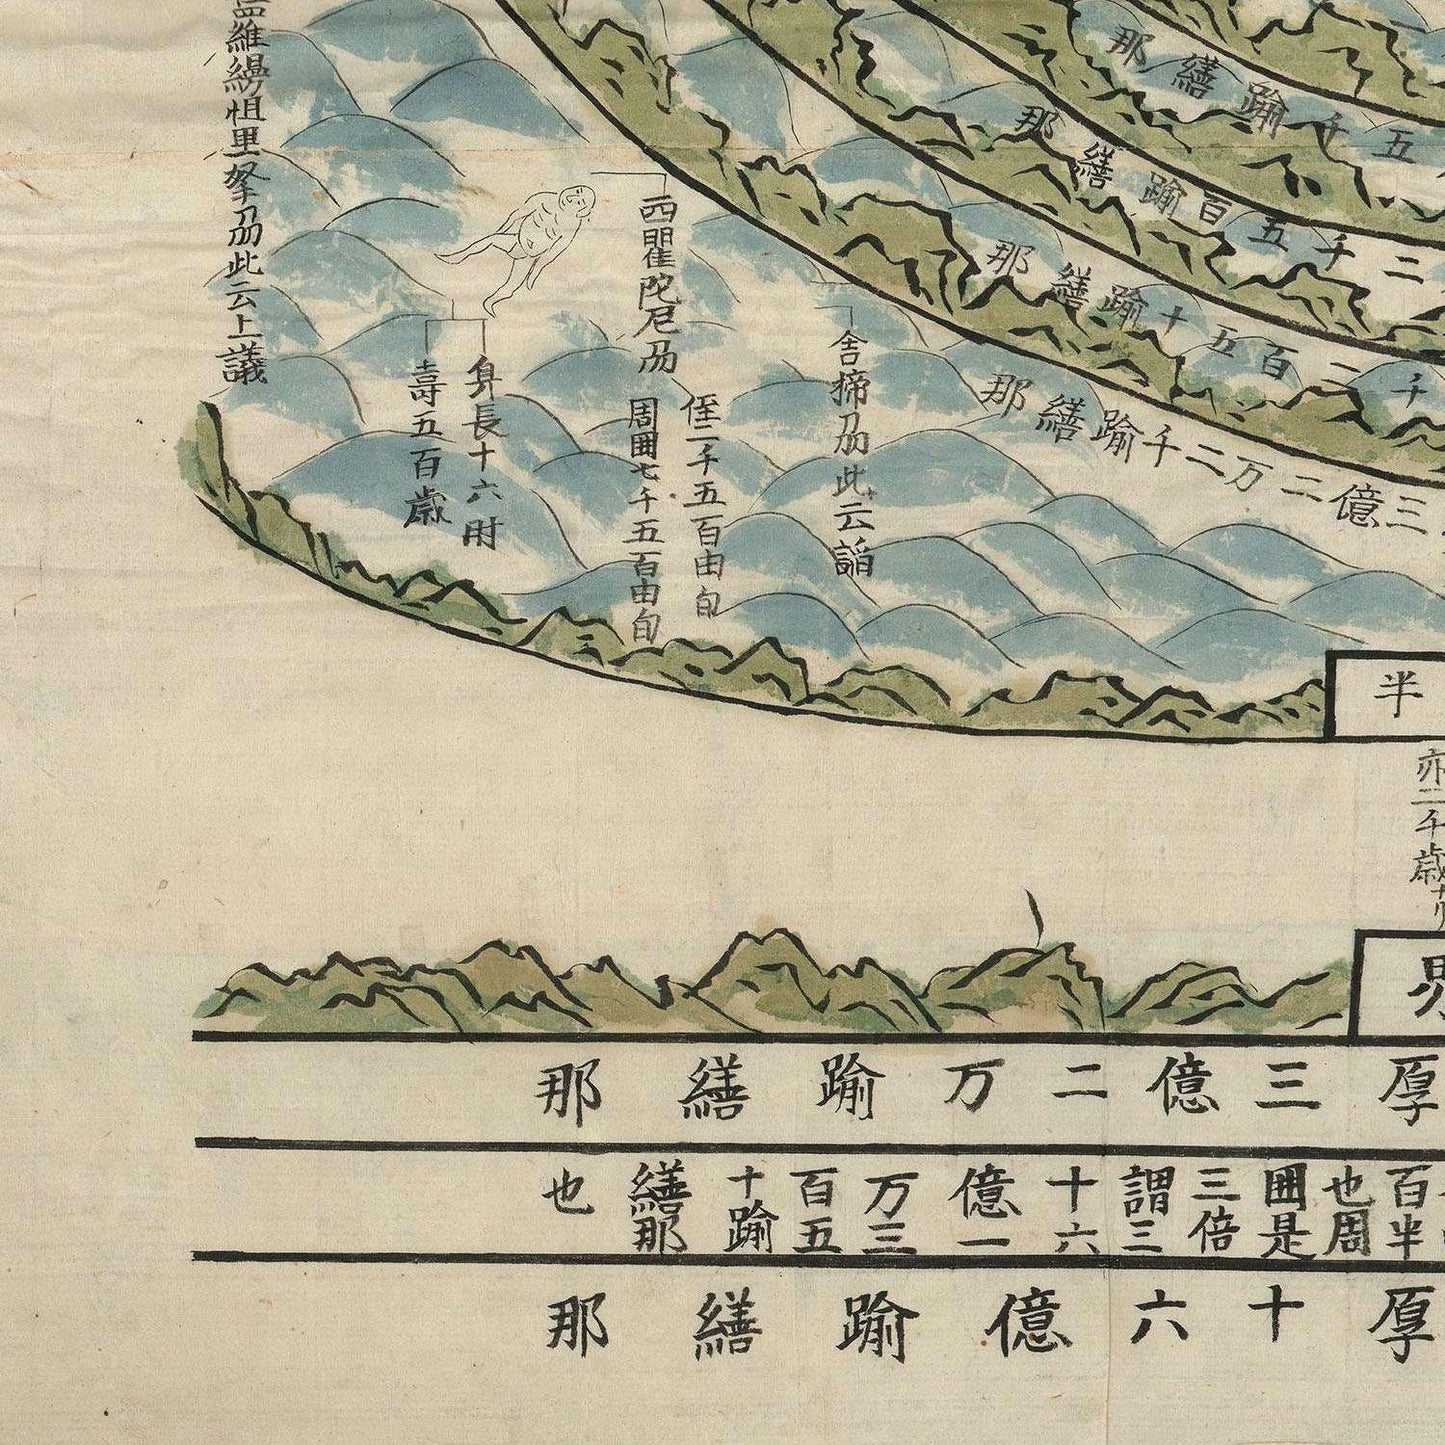 五千踰繕那
二千五百踰繕那
千二百五十踰繕那
三億二万二千踰繕那
舎揥刕此云諂
西瞿陀尼刕
徑二千五百由旬
周囲七千五百由旬
身長十六肘
壽五百歳
羅縵怛里拏刕此云上議
半
亦二千歳
界
厚三億二万踰繕那
百半也周囲是三倍謂三十六億一万三百五十踰繕那也
厚十六億踰繕那